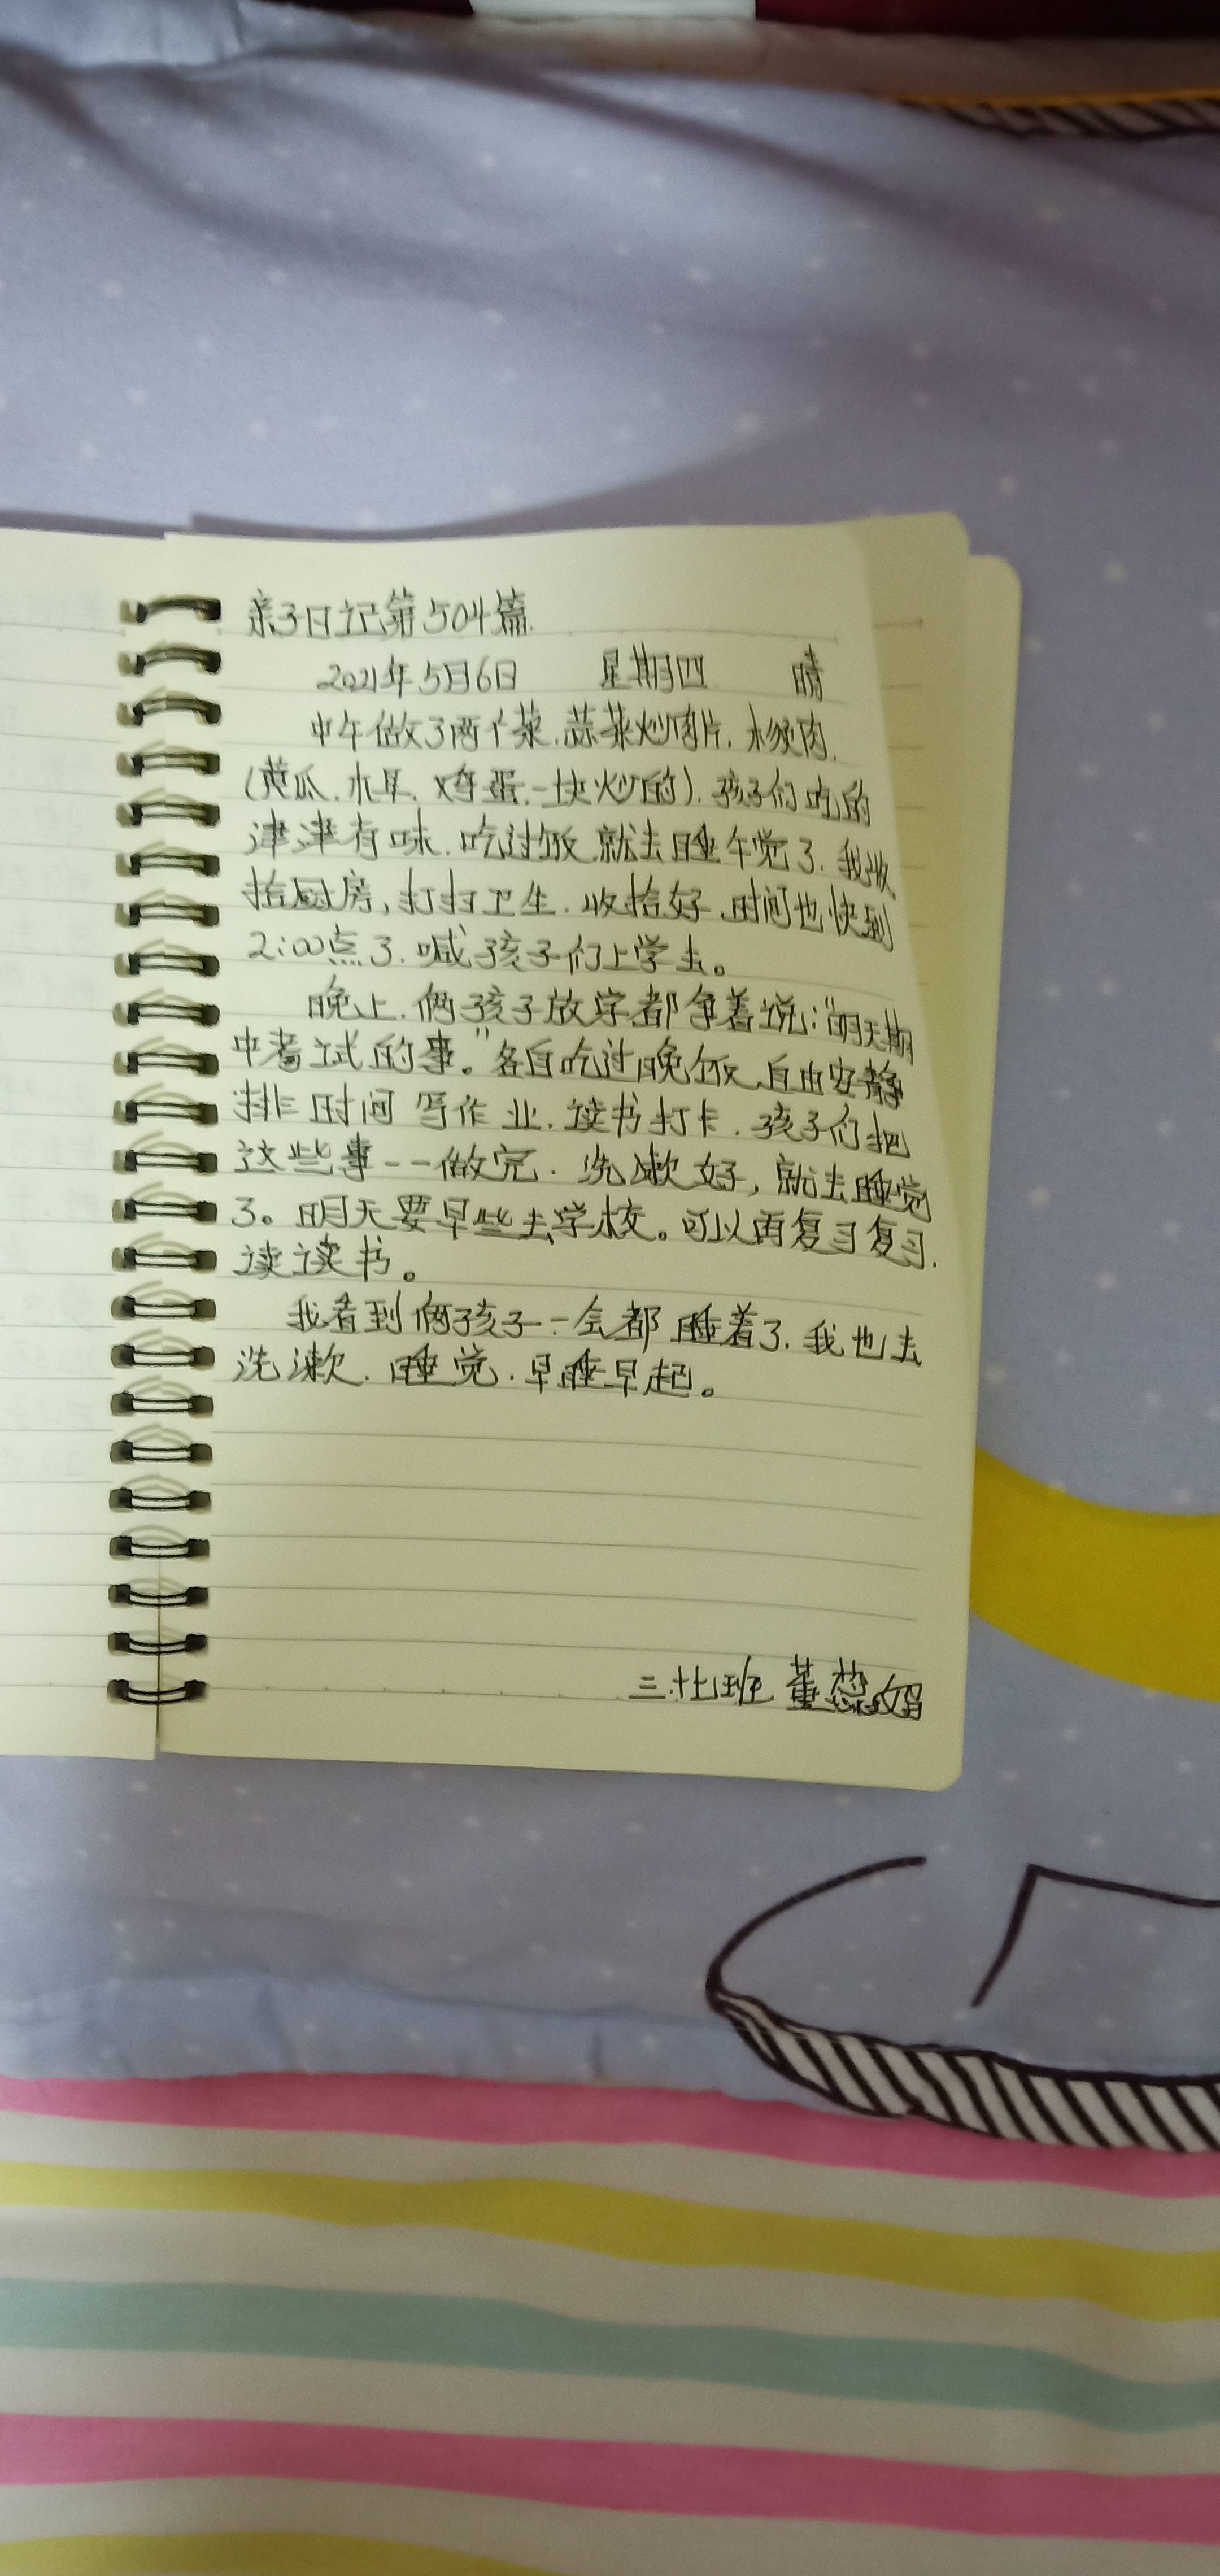 亲子日记第504篇.
2021年5月6日 星期四. 晴
中午做了两个菜.蒜菜炒肉片.木须肉.
(黄瓜.木耳.鸡蛋.一块炒的).孩子们吃的
津津有味.吃过饭.就去睡午觉了.我收
拾厨房,打扫卫生.收拾好.时间也快到
2:00点了.喊孩子们上学去。
晚上.俩孩子放学都争着说:"明天期
中考试的事。"各自吃过晚饭.自由安静
排时间写作业.读书打卡.孩子们把
这些事一一做完.洗漱好,就去睡觉
了。明天要早些去学校。可以再复习复习.
读读书。
我看到俩孩子一会都睡着了.我也去
洗漱.睡觉.早睡早起。
三.十七班 董蕊妈